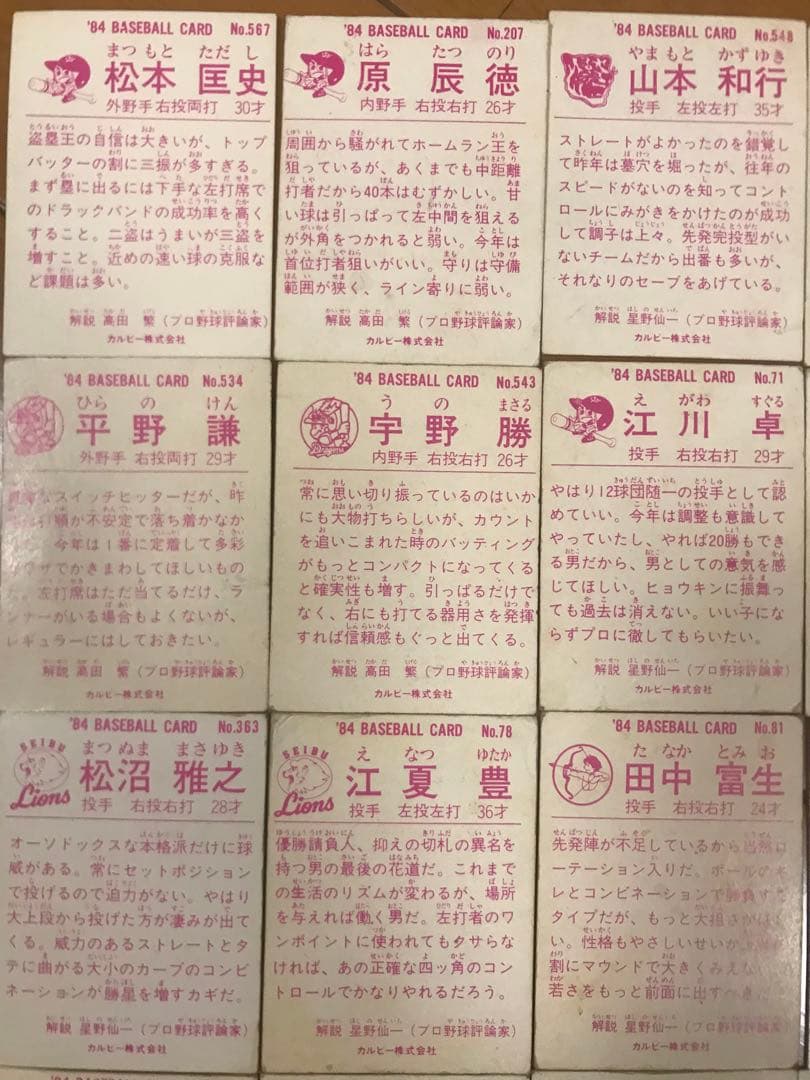 '84 BASEBALL CARD No.567
まつ もと ただ し
松本 匡史
外野手 右投両打 30才
盗塁王の自信は大きいが、トップ
バッターの割に三振が多すぎる。
まず塁に出るには下手な左打席で
のドラックバンドの成功率を高く
すること。二盗はうまいが三盗を
増すこと。近めの速い球の克服な
ど課題は多い。
解説 高田 繁 (プロ野球評論家)
カルビー株式会社
'84 BASEBALL CARD No.207
はら たつ のり
原 辰徳
内野手 右投右打 26才
周囲から騒がれてホームラン王を
狙っているが、あくまでも中距離
打者だから40本はむずかしい。甘
い球は引っぱって左中間を狙える
が外角をつかれると弱い。今年は
首位打者狙いがいい。守りは守備
範囲が狭く、ライン寄りに弱い。
解説 高田 繁 (プロ野球評論家)
カルビー株式会社
'84 BASEBALL CARD No.548
やま もと かず ゆき
山本 和行
投手 左投左打 35才
ストレートがよかったのを錯覚し
て昨年は墓穴を堀ったが、往年の
スピードがないのを知ってコント
ロールにみがきをかけたのが成功
して調子は上々。先発完投型がい
ないチームだから出番も多いが、
それなりのセーブをあげている。
解説 星野仙一 (プロ野球評論家)
カルビー株式会社
'84 BASEBALL CARD No.534
ひら の けん
平野 謙
外野手 右投両打 29才
なスイッチヒッターだが、昨
順が不安定で落ち着かなか
今年は1番に定着して多彩
ワザでかきまわしてほしいもの
だ。左打席はただ当てるだけ、ラ
ンナーがいる場合もよくないが、
レギュラーにはしておきたい。
解説 高田 繁 (プロ野球評論家)
カルビー株式会社
'84 BASEBALL CARD No.543
う の まさる
宇野 勝
内野手 右投右打 26才
常に思い切り振っているのはいか
にも大物打ちらしいが、カウント
を追いこまれた時のバッティング
がもっとコンパクトになってくる
と確実性も増す。引っぱるだけで
なく、右にも打てる器用さを発揮
すれば信頼感もぐっと出てくる。
解説 高田 繁 (プロ野球評論家)
カルビー株式会社
'84 BASEBALL CARD No.71
え がわ すぐる
江川 卓
投手 右投右打 29才
やはり12球団随一の投手として認
めていい。今年は調整も意識して
やっていたし、やれば20勝もでき
る男だから、男としての意気を感
じてほしい。ヒョウキンに振舞っ
ても過去は消えない。いい子にな
らずプロに徹してもらいたい。
解説 星野仙一 (プロ野球評論家)
カルビー株式会社
'84 BASEBALL CARD No.363
SEIBU
Lions
まつ ぬま まさ ゆき
松沼 雅之
投手 右投右打 28才
オーソドックスな本格派だけに球
威がある。常にセットポジション
で投げるので迫力がない。やはり
大上段から投げた方が凄みが出て
くる。威力のあるストレートとタ
テに曲がる大小のカーブのコンビ
ネーションが勝星を増すカギだ。
解説 星野仙一 (プロ野球評論家)
カルビー株式会社
'84 BASEBALL CARD No.78
SEIBU
Lions
え なつ ゆたか
江夏 豊
投手 左投左打 36才
優勝請負人、抑えの切札の異名を
持つ男の最後の花道だ。これまで
の生活のリズムが変わるが、場所
を与えれば働く男だ。左打者のワ
ンポイントに使われてもクサらな
ければ、あの正確な四ッ角のコン
トロールでかなりやれるだろう。
解説 星野仙一 (プロ野球評論家)
カルビー株式会社
'84 BASEBALL CARD No.81
た なか とみ お
田中 富生
投手 右投右打 24才
先発陣が不足しているから当然ロ
ーテーション入りだ。ボールのキ
レとコンビネーションで勝負する
タイプだが、もっと大胆さがほし
い。性格もやさしいせいか
割にマウンドで大きくみえな
若さをもっと前面に出すべき
解説 星野仙一 (プロ野球評論家)
カルビー株式会社